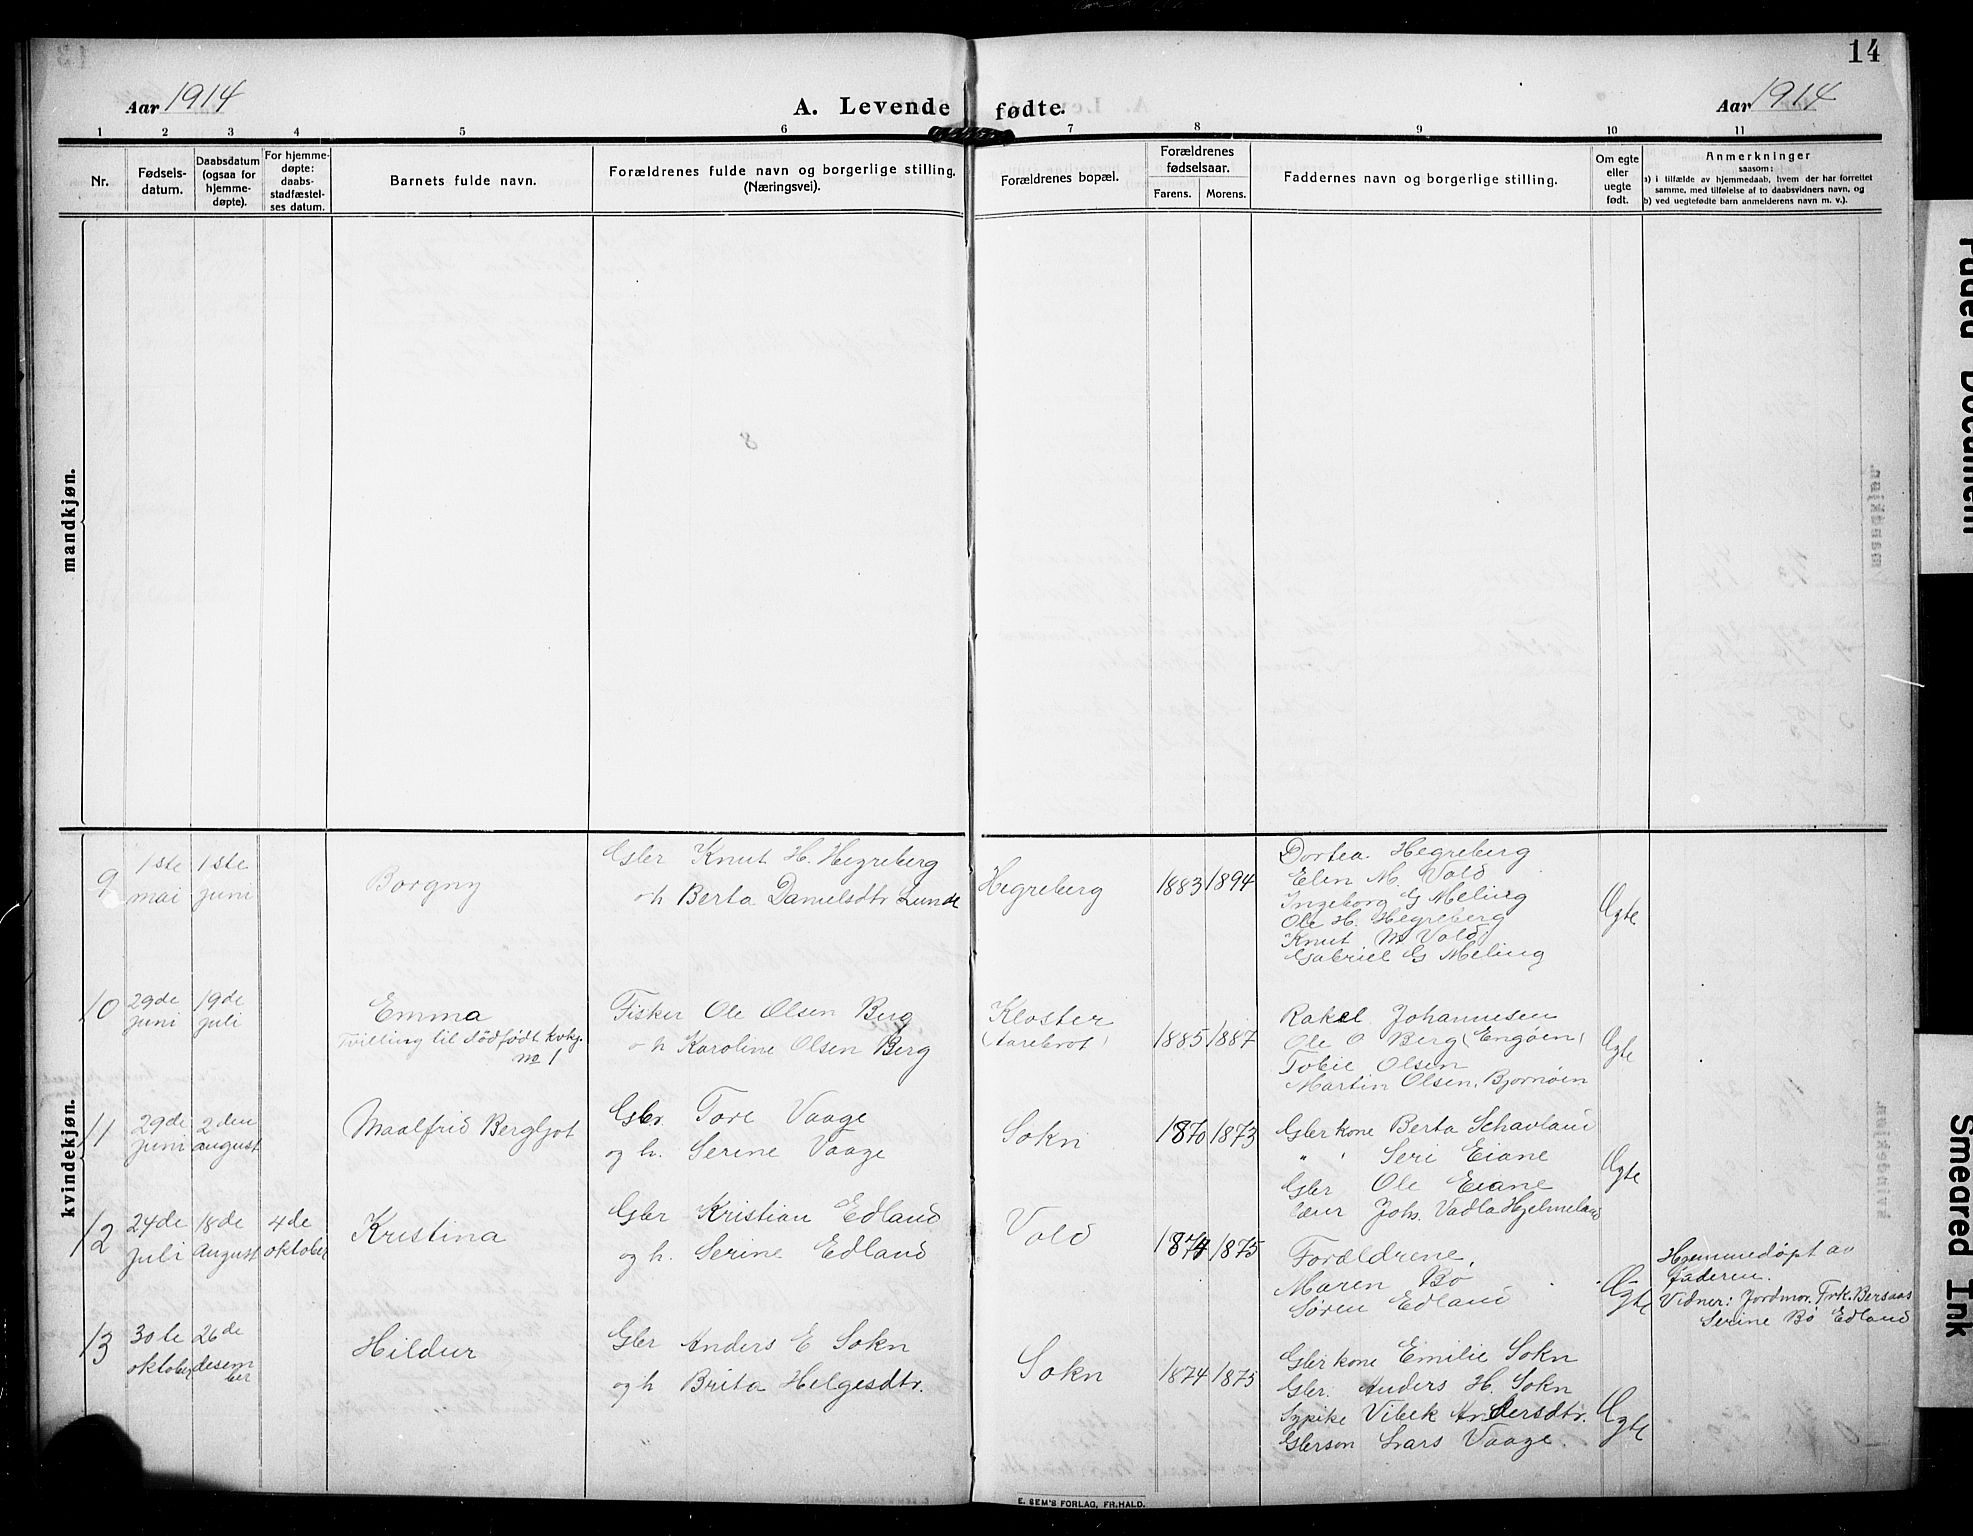 14
Aar 1914
A. Levende fødte.
Aar 1914
1 2 3 4 5 6 7 8 9 10 11
Nr.
Fødsels-
datum.
Daabsdatum
(ogsaa for
hjemme-
døpte).
For hjemme-
døpte:
daabs-
stadfæstel-
ses datum.
Barnets fulde navn.
Forældrenes fulde navn og borgerlige stilling.
(Næringsvei).
Forældrenes bopæl.
Forældrenes
fødselsaar.
Farens. Morens.
Faddernes navn og borgerlige stilling.
Om egte
eller
uegte
født.
Anmerkninger
saasom:
a) i tilfælde av hjemmedaab, hvem der har forrettet
samme, med tilføielse af to daabsvidners navn, og
b) ved uegtefødte barn anmelderens navn m. v.).
mandkjøn.
kvindekjøn.
9
1ste
mai
1ste
juni
Borgny
Gbr Knut H. Hegreberg
o h Berta Danielsdtr Lunde
Hegreberg
1883 1894
Dortea Hegreberg
Elen M. Vold
Ingeborg G Meling
Ole H. Hegreberg
Knut M Vold
Gabriel G Meling
Ægte
10
29de
juni
19de
juli
Emma
Tvilling til dødfødt kvkj.
no 1
Fisker Ole Olsen Berg
o h Karoline Olsen Berg
Kloster
(Aarebrot)
1885 1887
Rakel Johannesen
Ole O Berg (Engøen)
Tobie Olsen
Martin Olsen, Bjørnøen
Ægte
11
29de
juni
2den
august
Maalfrid Bergljot
Gbr. Tore Vaage
og h. Serine Vaage
Sokn
1870 1873
Gbrkone Berta Schavland
" " Seri Eiane
Gbr Ole Eiane
Lær Johs. Vadla Hjelmeland
Ægte
12
24de
juli
18de
August
4de
oktober
Kristina
Gbr Kristian Edland
og h. Serine Edland
Vold
1874 1875
Forældrene,
Maren Bø
Søren Edland
Ægte
Hjemmedøpt av
faderen.
Vidner: Jordmor Frk. Bersaas
Serine Bø Edland
13
30te
oktober
26de
desem
ber
Hildur
Gbr Anders E Sokn
og h Brita Helgesdtr.
Sokn
1874 1875
Gbrkone Emilie Sokn
Gbr. Anders H. Sokn
Sypike Vibek Andersdtr.
Gbrson Lars Vaage.
Ægte
E. SEM'S FORLAG, FR.HALD.
Faded Document
Smeared Ink